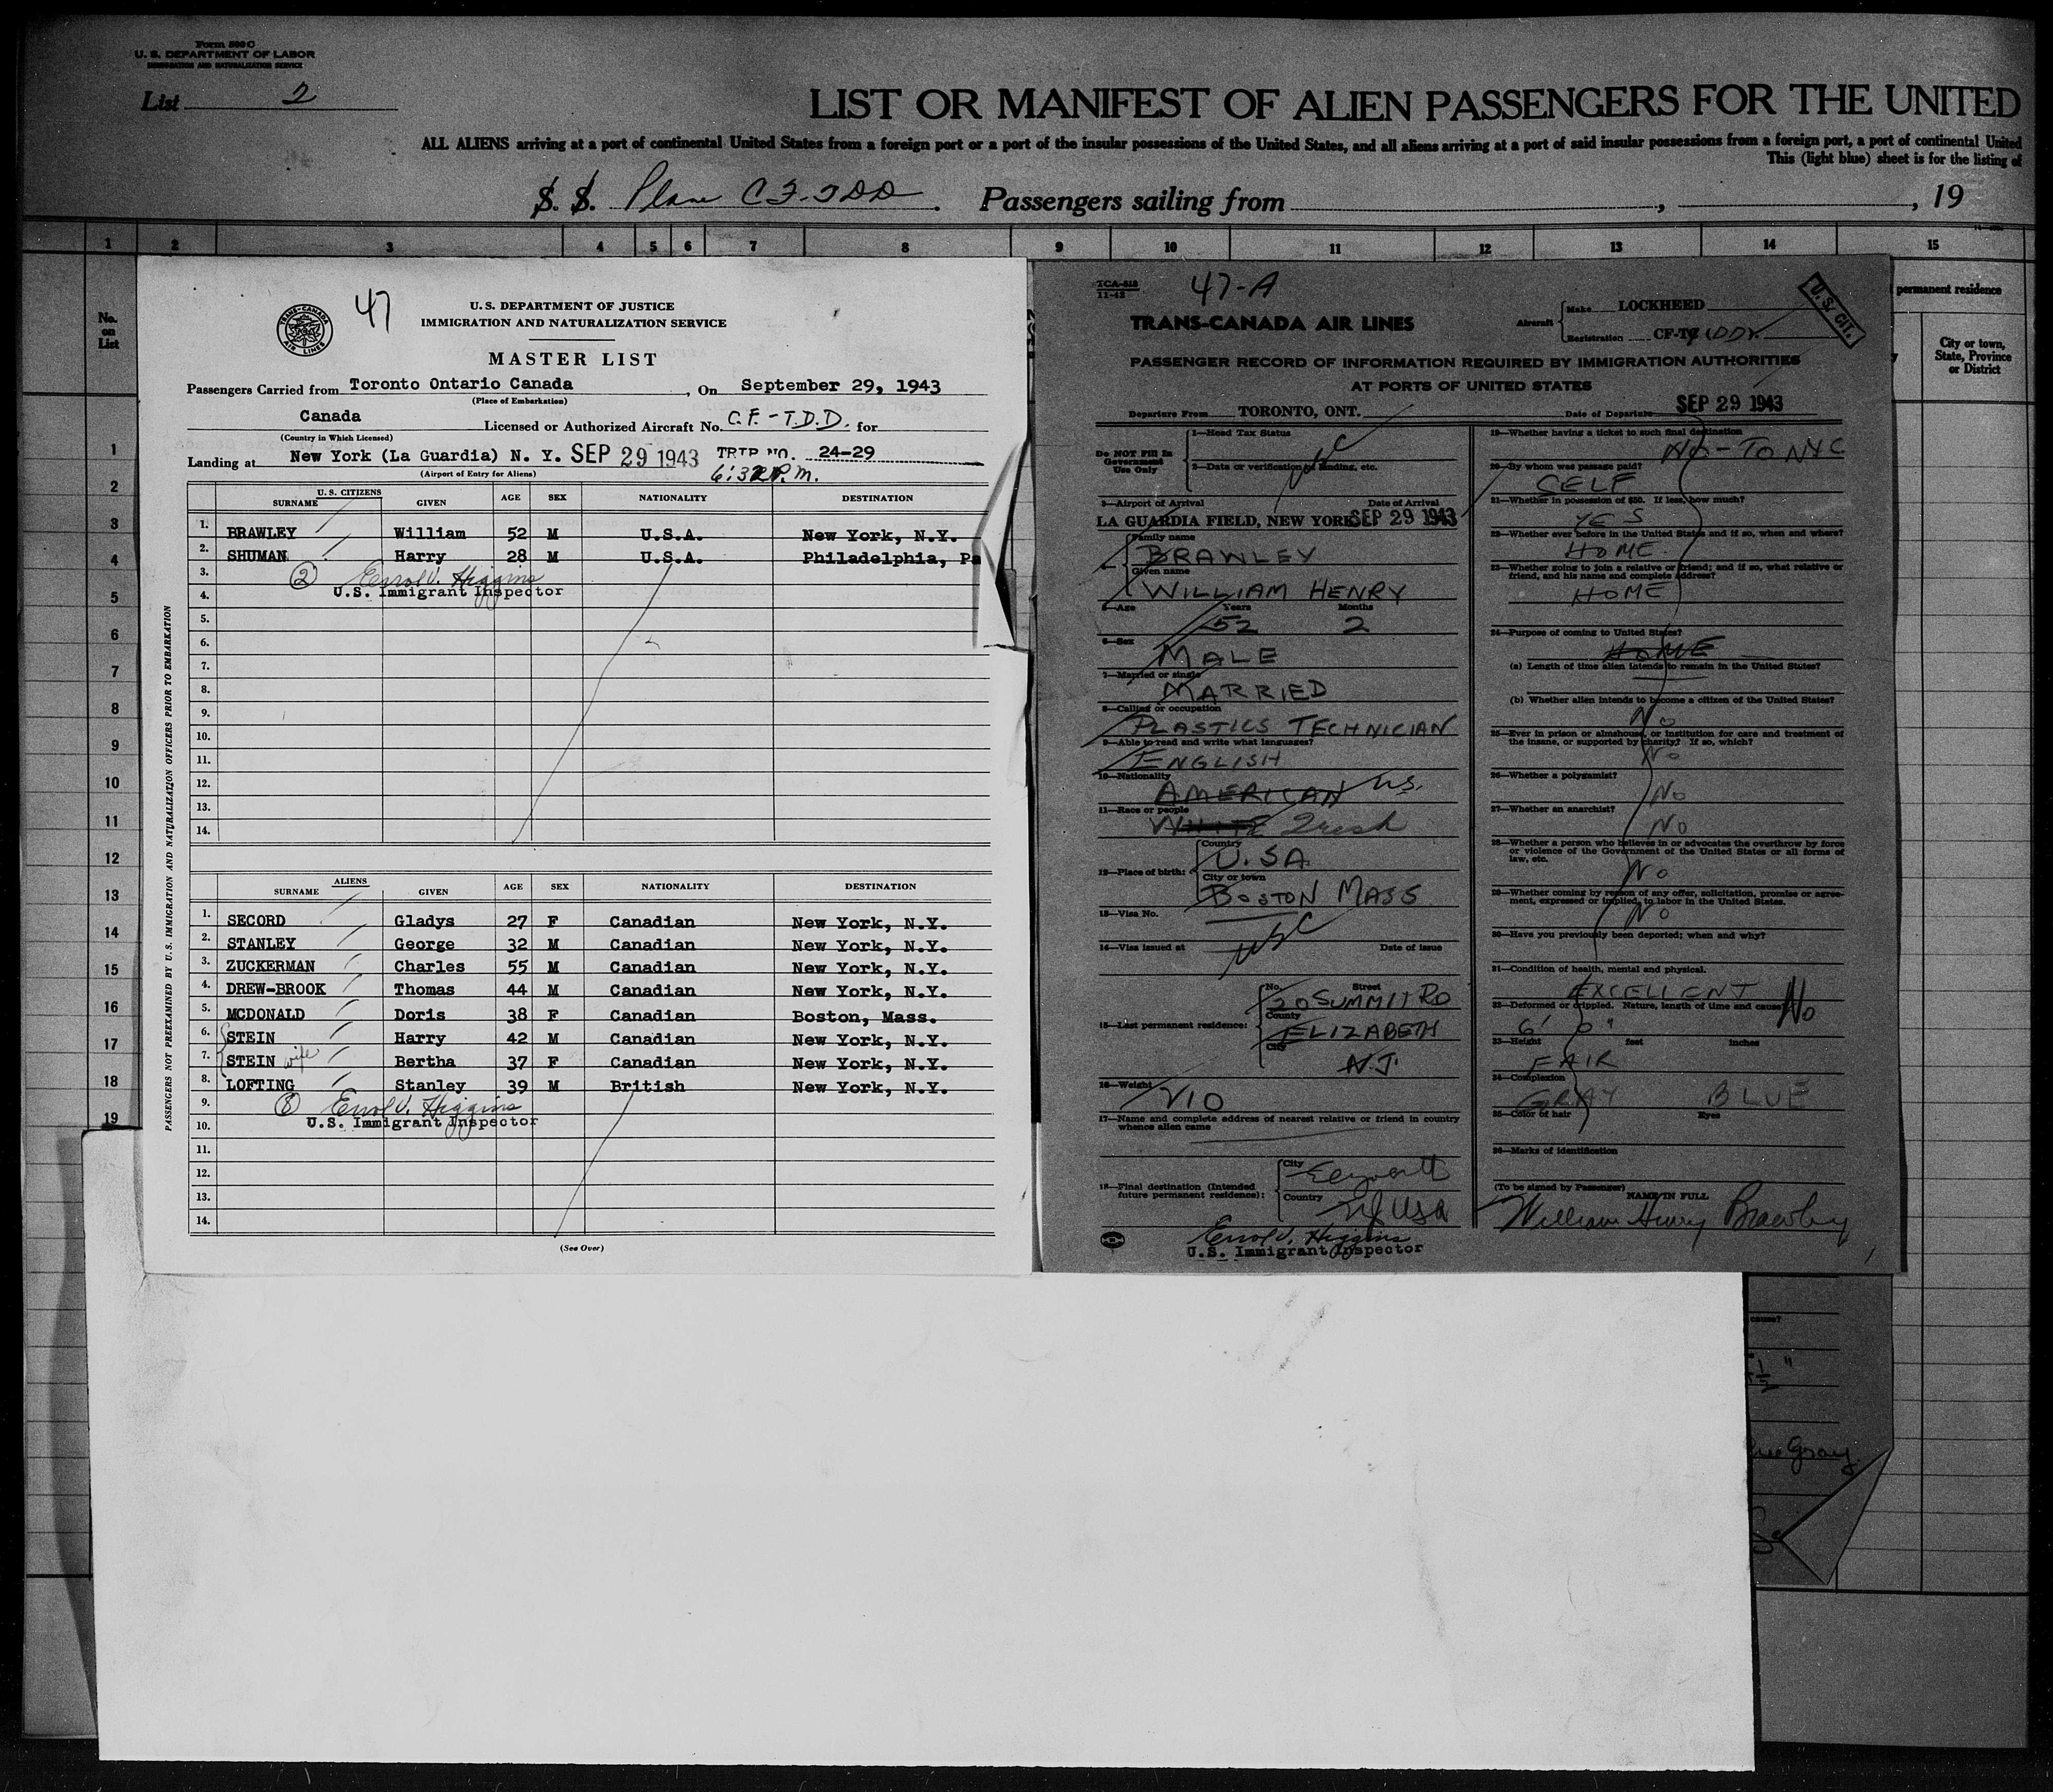 Form 500 C
U. S. DEPARTMENT OF LABOR
IMMIGRATION AND NATURALIZATION SERVICE
List 2
LIST OR MANIFEST OF ALIEN PASSENGERS FOR THE UNITED
ALL ALIENS arriving at a port of continental United States from a foreign port or a port of the insular possessions of the United States, and all aliens arriving at a port of said insular possessions from a foreign port, a port of continental United
This (light blue) sheet is for the listing of
S. S. Plane CF-TDD. Passengers sailing from , , 19
1 2 3 4 5 6 7 8 9 10 11 12 13 14 15
No. on List
permanent residence
City or town, State, Province or District
1
2
3
4
5
6
7
8
9
10
11
12
13
14
15
16
17
18
19
TRANS-CANADA AIR LINES
47
U. S. DEPARTMENT OF JUSTICE
IMMIGRATION AND NATURALIZATION SERVICE
MASTER LIST
Passengers Carried from Toronto Ontario Canada, On September 29, 1943
(Place of Embarkation)
Canada Licensed or Authorized Aircraft No. C.F.-T.D.D. for
(Country in Which Licensed)
Landing at New York (La Guardia) N. Y. SEP 29 1943 TRIP NO. 24-29
(Airport of Entry for Aliens) 6:32 P.M.
PASSENGERS NOT PREEXAMINED BY U.S. IMMIGRATION AND NATURALIZATION OFFICERS PRIOR TO EMBARKATION
U. S. CITIZENS
SURNAME GIVEN AGE SEX NATIONALITY DESTINATION
1. BRAWLEY William 52 M U.S.A. New York, N.Y.
2. SHUMAN Harry 28 M U.S.A. Philadelphia, Pa
3. (2) Errol V. Higgins
4. U.S. Immigrant Inspector
5.
6.
7.
8.
9.
10.
11.
12.
13.
14.
ALIENS
SURNAME GIVEN AGE SEX NATIONALITY DESTINATION
1. SECORD Gladys 27 F Canadian New York, N.Y.
2. STANLEY George 32 M Canadian New York, N.Y.
3. ZUCKERMAN Charles 55 M Canadian New York, N.Y.
4. DREW-BROOK Thomas 44 M Canadian New York, N.Y.
5. MCDONALD Doris 38 F Canadian Boston, Mass.
6. STEIN Harry 42 M Canadian New York, N.Y.
7. STEIN wife Bertha 37 F Canadian New York, N.Y.
8. LOFTING Stanley 39 M British New York, N.Y.
9. (8) Errol V. Higgins
10. U.S. Immigrant Inspector
11.
12.
13.
14.
(See Over)
TCA-818
11-42
47-A
TRANS-CANADA AIR LINES
Aircraft Make LOCKHEED
Registration CF-T DD
U.S. CIT.
PASSENGER RECORD OF INFORMATION REQUIRED BY IMMIGRATION AUTHORITIES
AT PORTS OF UNITED STATES
Departure From TORONTO, ONT. Date of Departure SEP 29 1943
Do NOT Fill In Government Use Only
1—Head Tax Status
2—Data or verification of landing, etc.
USC
3—Airport of Arrival Date of Arrival
LA GUARDIA FIELD, NEW YORK SEP 29 1943
4— Family name BRAWLEY
Given name WILLIAM HENRY
5—Age Years 52 Months 2
6—Sex MALE
7—Married or single MARRIED
8—Calling or occupation PLASTICS TECHNICIAN
9—Able to read and write what languages? ENGLISH
10—Nationality AMERICAN U.S.
11—Race or people WHITE Irish
12—Place of birth: Country U.S.A.
City or town BOSTON MASS
13—Visa No.
USC
14—Visa issued at Date of issue
15—Last permanent residence: No. Street 20 SUMMIT RD
County ELIZABETH
City N.J.
16—Weight 210
17—Name and complete address of nearest relative or friend in country whence alien came
18—Final destination (Intended future permanent residence): City
Country NJ USA
Errol V. Higgins
U.S. Immigrant Inspector
19—Whether having a ticket to such final destination
NO - TO NYC
20—By whom was passage paid?
SELF
21—Whether in possession of $50. If less, how much?
YES
22—Whether ever before in the United States and if so, when and where?
HOME
23—Whether going to join a relative or friend; and if so, what relative or friend, and his name and complete address?
HOME
24—Purpose of coming to United States?
HOME
(a) Length of time alien intends to remain in the United States?
(b) Whether alien intends to become a citizen of the United States?
No
25—Ever in prison or almshouse, or institution for care and treatment of the insane, or supported by charity? If so, which?
No
26—Whether a polygamist?
No
27—Whether an anarchist?
No
28—Whether a person who believes in or advocates the overthrow by force or violence of the Government of the United States or all forms of law, etc.
No
29—Whether coming by reason of any offer, solicitation, promise or agreement, expressed or implied, to labor in the United States.
No
30—Have you previously been deported; when and why?
31—Condition of health, mental and physical.
EXCELLENT
32—Deformed or crippled. Nature, length of time and cause? No
6' 0"
33—Height feet inches
FAIR
34—Complexion
GRAY BLUE
35—Color of hair Eyes
36—Marks of identification
(To be signed by Passenger) NAME IN FULL
William Henry Brawley
cause?
Gray